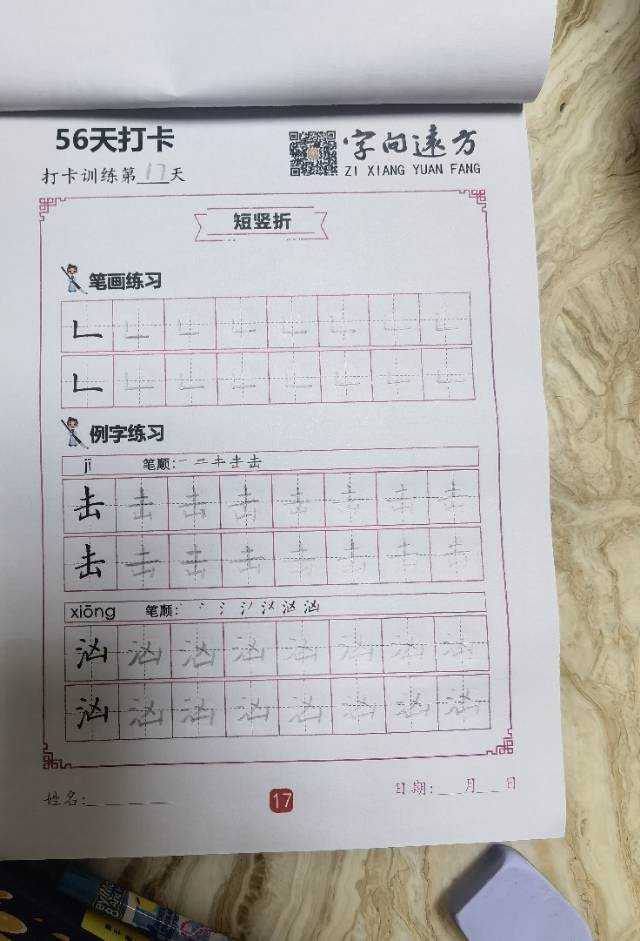 56天打卡
字向远方
打卡训练第17天
ZI XIANG YUAN FANG
短竖折
笔画练习
例字练习
jī 笔顺:一 二 キ 击 击
击 击 击 击 击 击 击 击
击 击 击 击 击 击 击 击
xiōng 笔顺:
汹 汹 汹 汹 汹 汹 汹 汹
汹 汹 汹 汹 汹 汹 汹 汹
姓名:
17
日期: 月 日